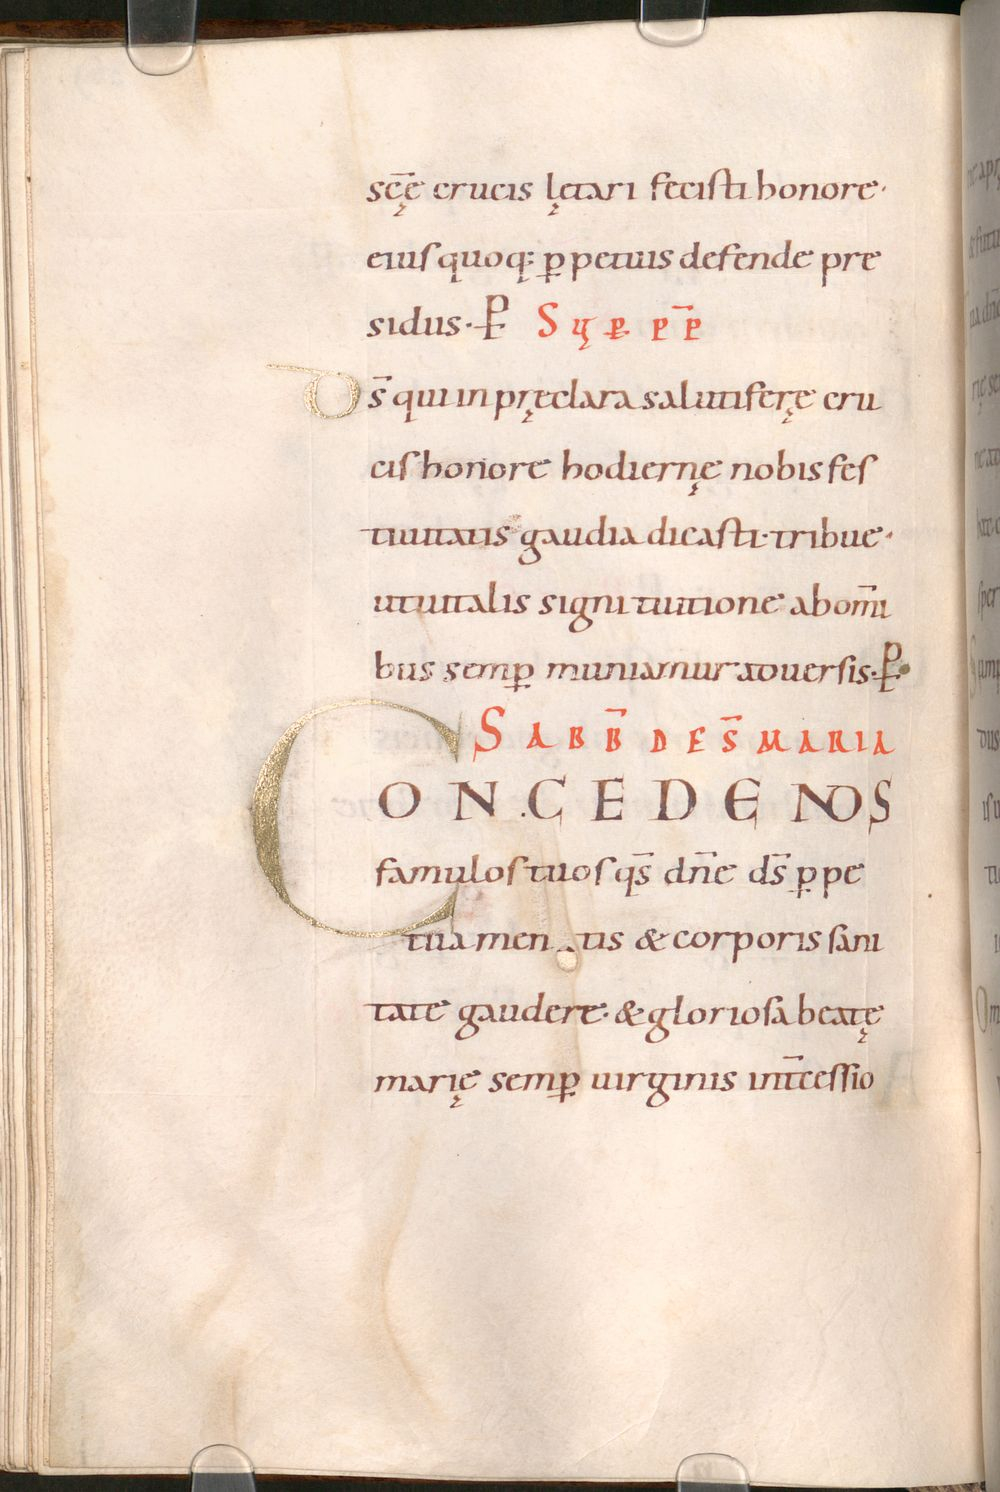 sc̄ę crucis lętari fecisti honore·
eiusquoq; ꝑpetuis defende pre
sidus·P̵ Sup pp̄
Ds̄ qui in pręclara salutiferę cru
cis honore hodiernę nobis fes
tiuitatis gaudia dicasti·tribue·
utuitalis signi tuitione ab om̄i
bus semꝑ muniamur aduersis·P̵
SABB̄ DE S̄ MARIA
CONCEDE NOS
famulos tuos qs̄ dn̄e ds̄ ꝑpe
tua men tis & corporis sani
tate gaudere·& gloriosa beatę
marię semꝑ uirginis int̄cessio